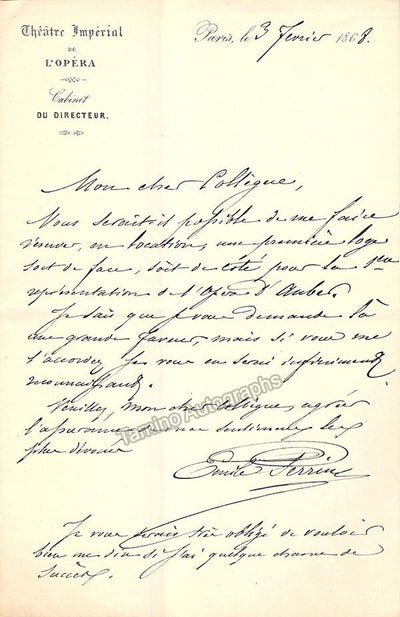 Théâtre Impérial
DE
L'OPÉRA
Cabinet
DU DIRECTEUR.
Paris, le 3 fevrier 1868.
Mon cher Collègue,
Vous serait-il possible de me faire
réserver, en location, une première loge
soit de face, soit de côté pour la 1ère
représentation de l'Opéra d'Auber.
Je sais que je vous demande là
une grande faveur, mais si vous me
l'accordez je vous en serai infiniment
reconnaissant.
Veuillez, mon cher Collègue, agréer
l'assurance de mes sentiments les
plus dévoués
Emile Perrin
Je vous serais très obligé de vouloir
bien me dire si j'ai quelque chance de
succès.
Tamino Autographs